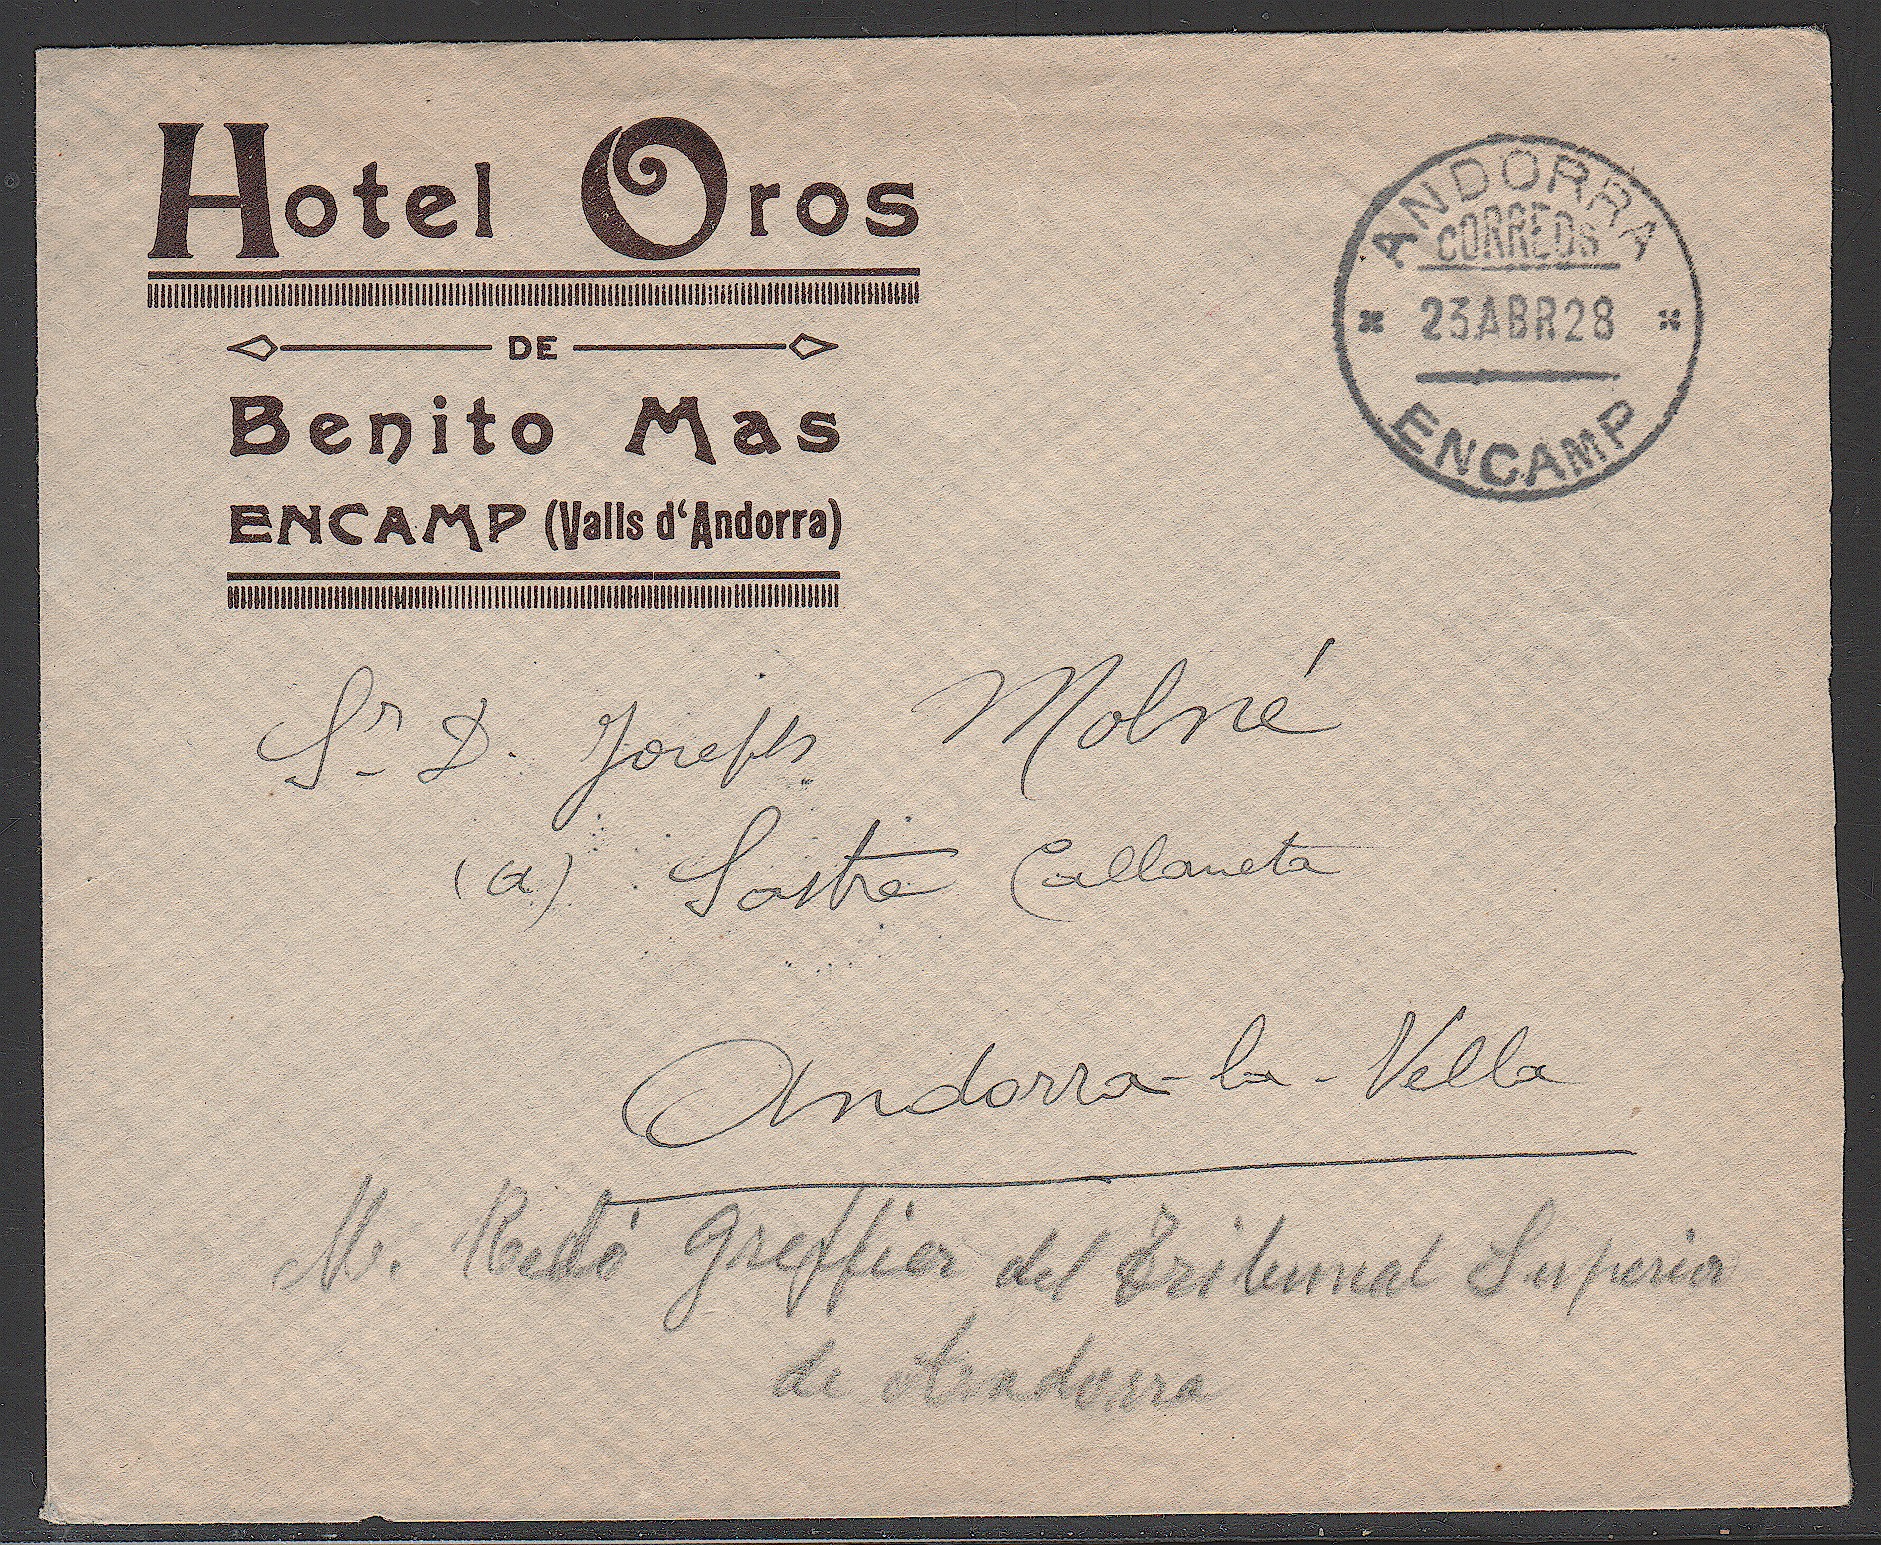 Hotel Oros
DE
Benito Mas
ENCAMP (Valls d'Andorra)
ANDORRA
CORREOS
23ABR28
ENCAMP
Sr. D. Joseph Molné
(a) Sastre Callaueta
Andorra-la-Vella
M. Redó Greffier del Tribunal Superior
de Andorra